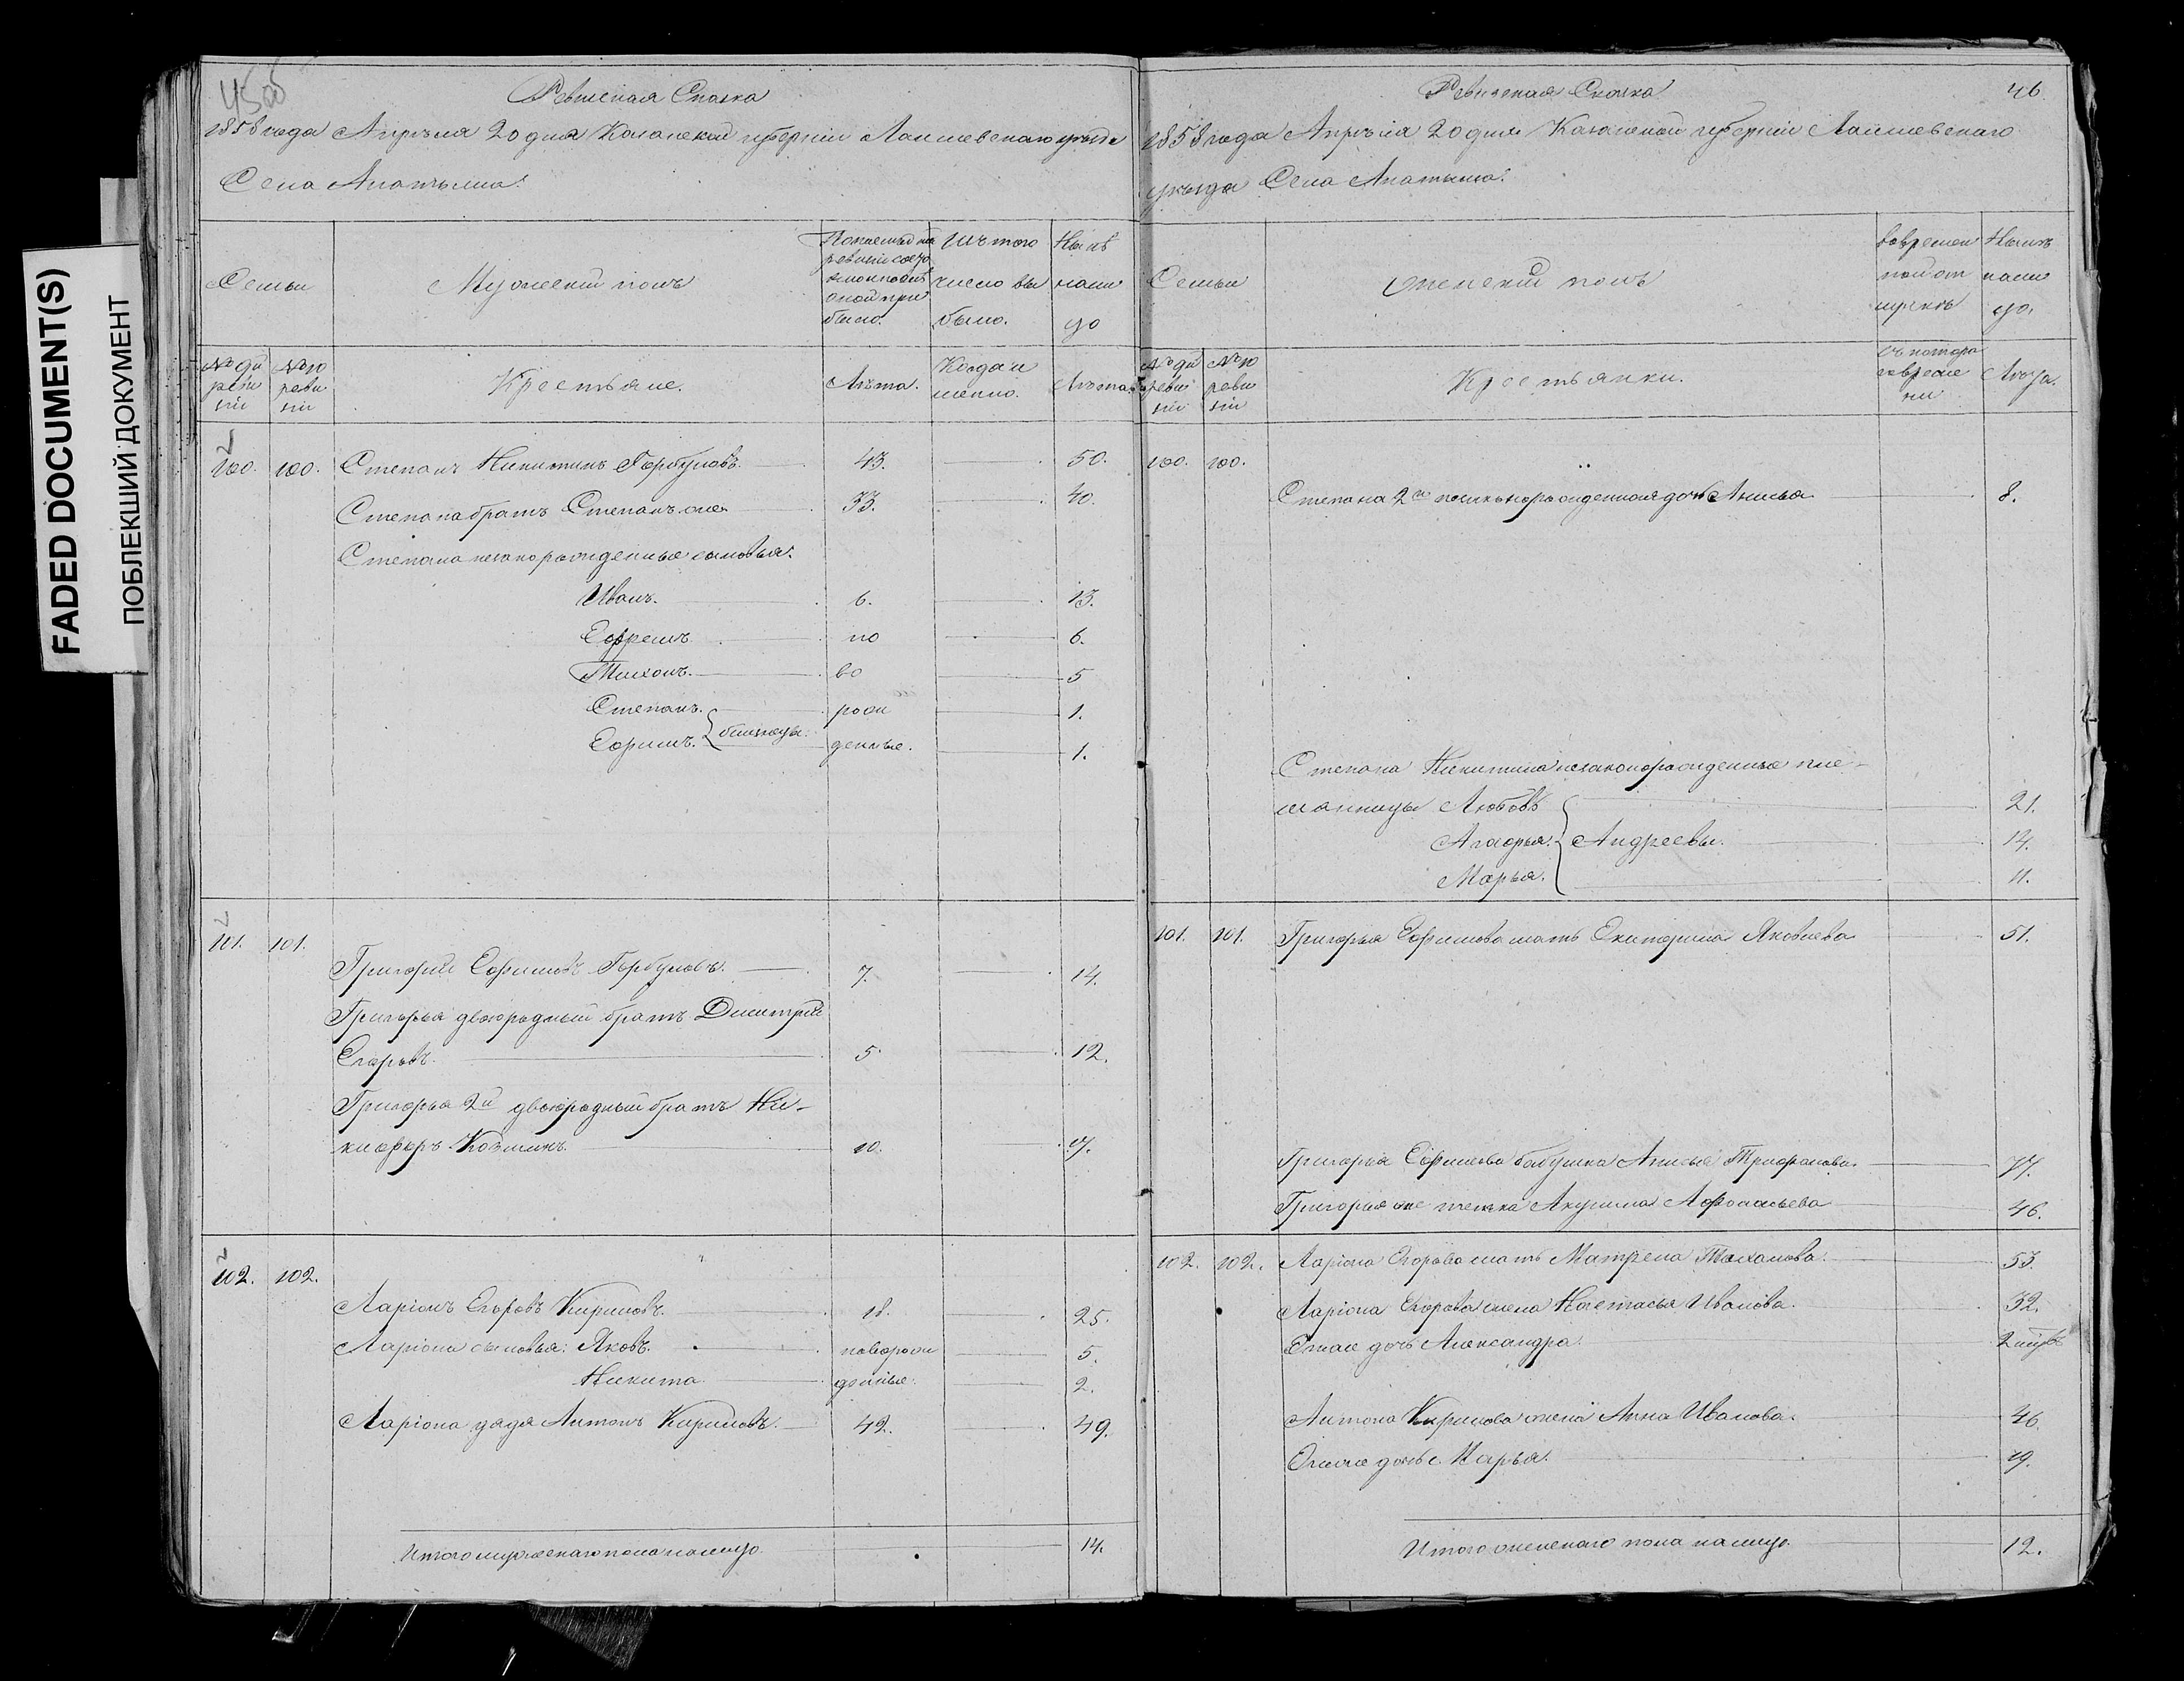 FADED DOCUMENT(S)
ПОБЛЕКШИЙ ДОКУМЕНТ
Ревизская Сказка
1858 года Апреля 20 дня Казанской губернии Лаишевского уезда
Села
Семьи
Мужеский полъ
По последней ревизии состояло и после оной прибыло.
Изъ того числа выбыло.
Ныне налицо
№ ди ревизии
№ 10 ревизии
Крестьяне.
Лета.
Когда именно.
Лета.
100. 100. Степанъ Никитинъ Горбуновъ. 43. 50.
Степана братъ Степанъ же 33. 40.
Степана незаконорожденные сыновья:
Иванъ. 6. 13.
Ефремъ по 6.
Тихонъ. во 5
Степанъ. рож 1.
Ефимъ. близнецы. денные. 1.
101. 101.
Григорий Ефимовъ Горбуновъ. 7. 14.
Григорья двоюродный братъ Дмитрий
Егоровъ. 5. 12.
Григорья 2й двоюродный братъ Ни-
кифоръ Козминъ. 10. 17.
102. 102.
Ларіонъ Егоровъ Кириловъ. 18. 25.
Ларіона сыновья: Яковъ. новорож 5.
Никита денные. 2.
Ларіона дядя Антонъ Кириловъ. 42. 49.
Итого мужескаго пола налицо. 14.
Ревизская Сказка 46.
1858 года Апреля 20 дня Казанской губернии Лаишевского
уезда Села
Семьи
Женскій полъ
Во временной отлучке
Ныне налицо.
№ ди ревизии
№ 10 ревизии
Крестьянки.
Съ котораго времени
Лета.
100. 100.
Степана 2го незаконорожденная дочь Анисья 8.
Степана Никитина незаконорожденные пле-
мянницы Любовь 21.
Агафья. Андреевы. 14.
Марья. 11.
101. 101. Григорья Ефимова мать Екатерина Яковлева 51.
Григорья Ефимова бабушка Анисья Трифонова. 77.
Григорья же тетка Акулина Афонасьева 46.
102. 102. Ларіона Егорова мать Матрена Тихонова. 53.
Ларіона Егорова жена Настасья Иванова. 32.
Ихъ же дочь Александра.
Антона Кирилова жена Анна Иванова. 46.
Ихъ же дочь Марья. 19.
Итого женскаго пола налицо. 12.